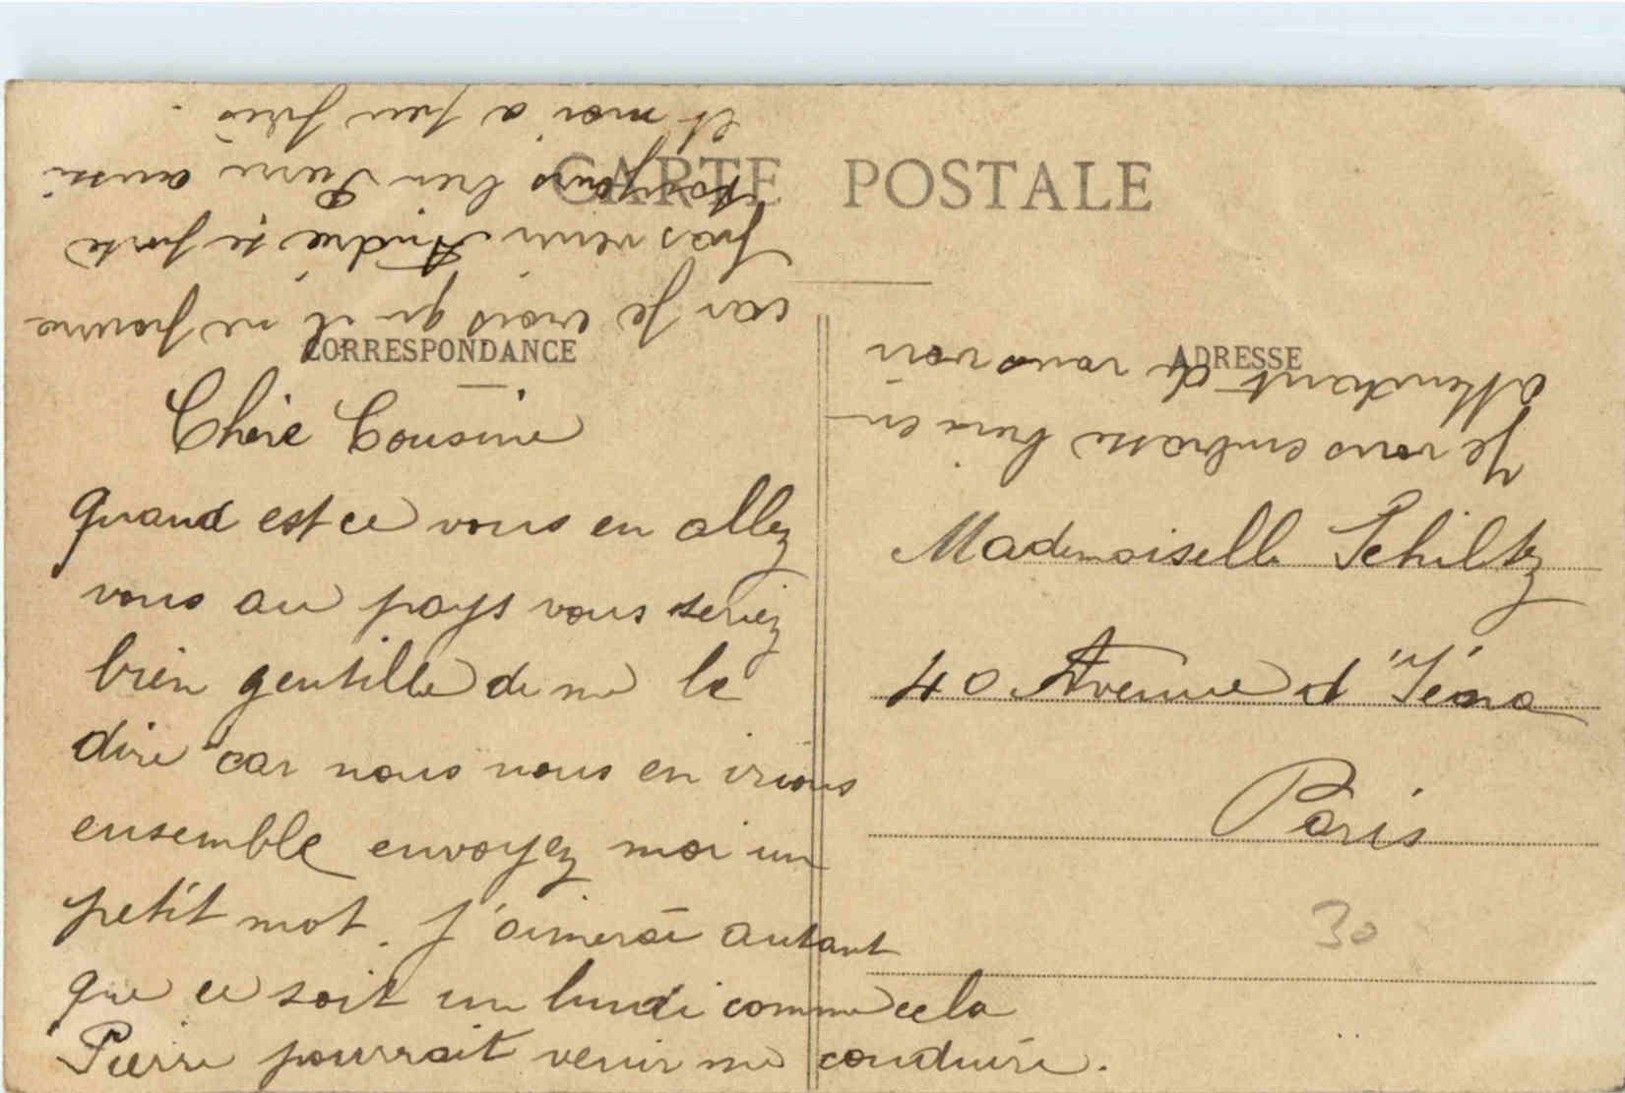 CARTE POSTALE
CORRESPONDANCE
Chère Cousine
quand est ce vous en allez
vous au pays vous seriez
bien gentille de me le
dire car nous nous en irions
ensemble envoyez moi un
petit mot. J'aimerai autant
que ce soit un lundi comme cela
Pierre pourrait venir me conduire.
car je crois qu'il ne pourra
pas venir André se porte
toujours bien Pierre aussi
et moi a peu près.
Je vous embrasse bien en
attendant de vous voir
ADRESSE
Mademoiselle Schiltz
40 Avenue d'Iéna
Paris
30